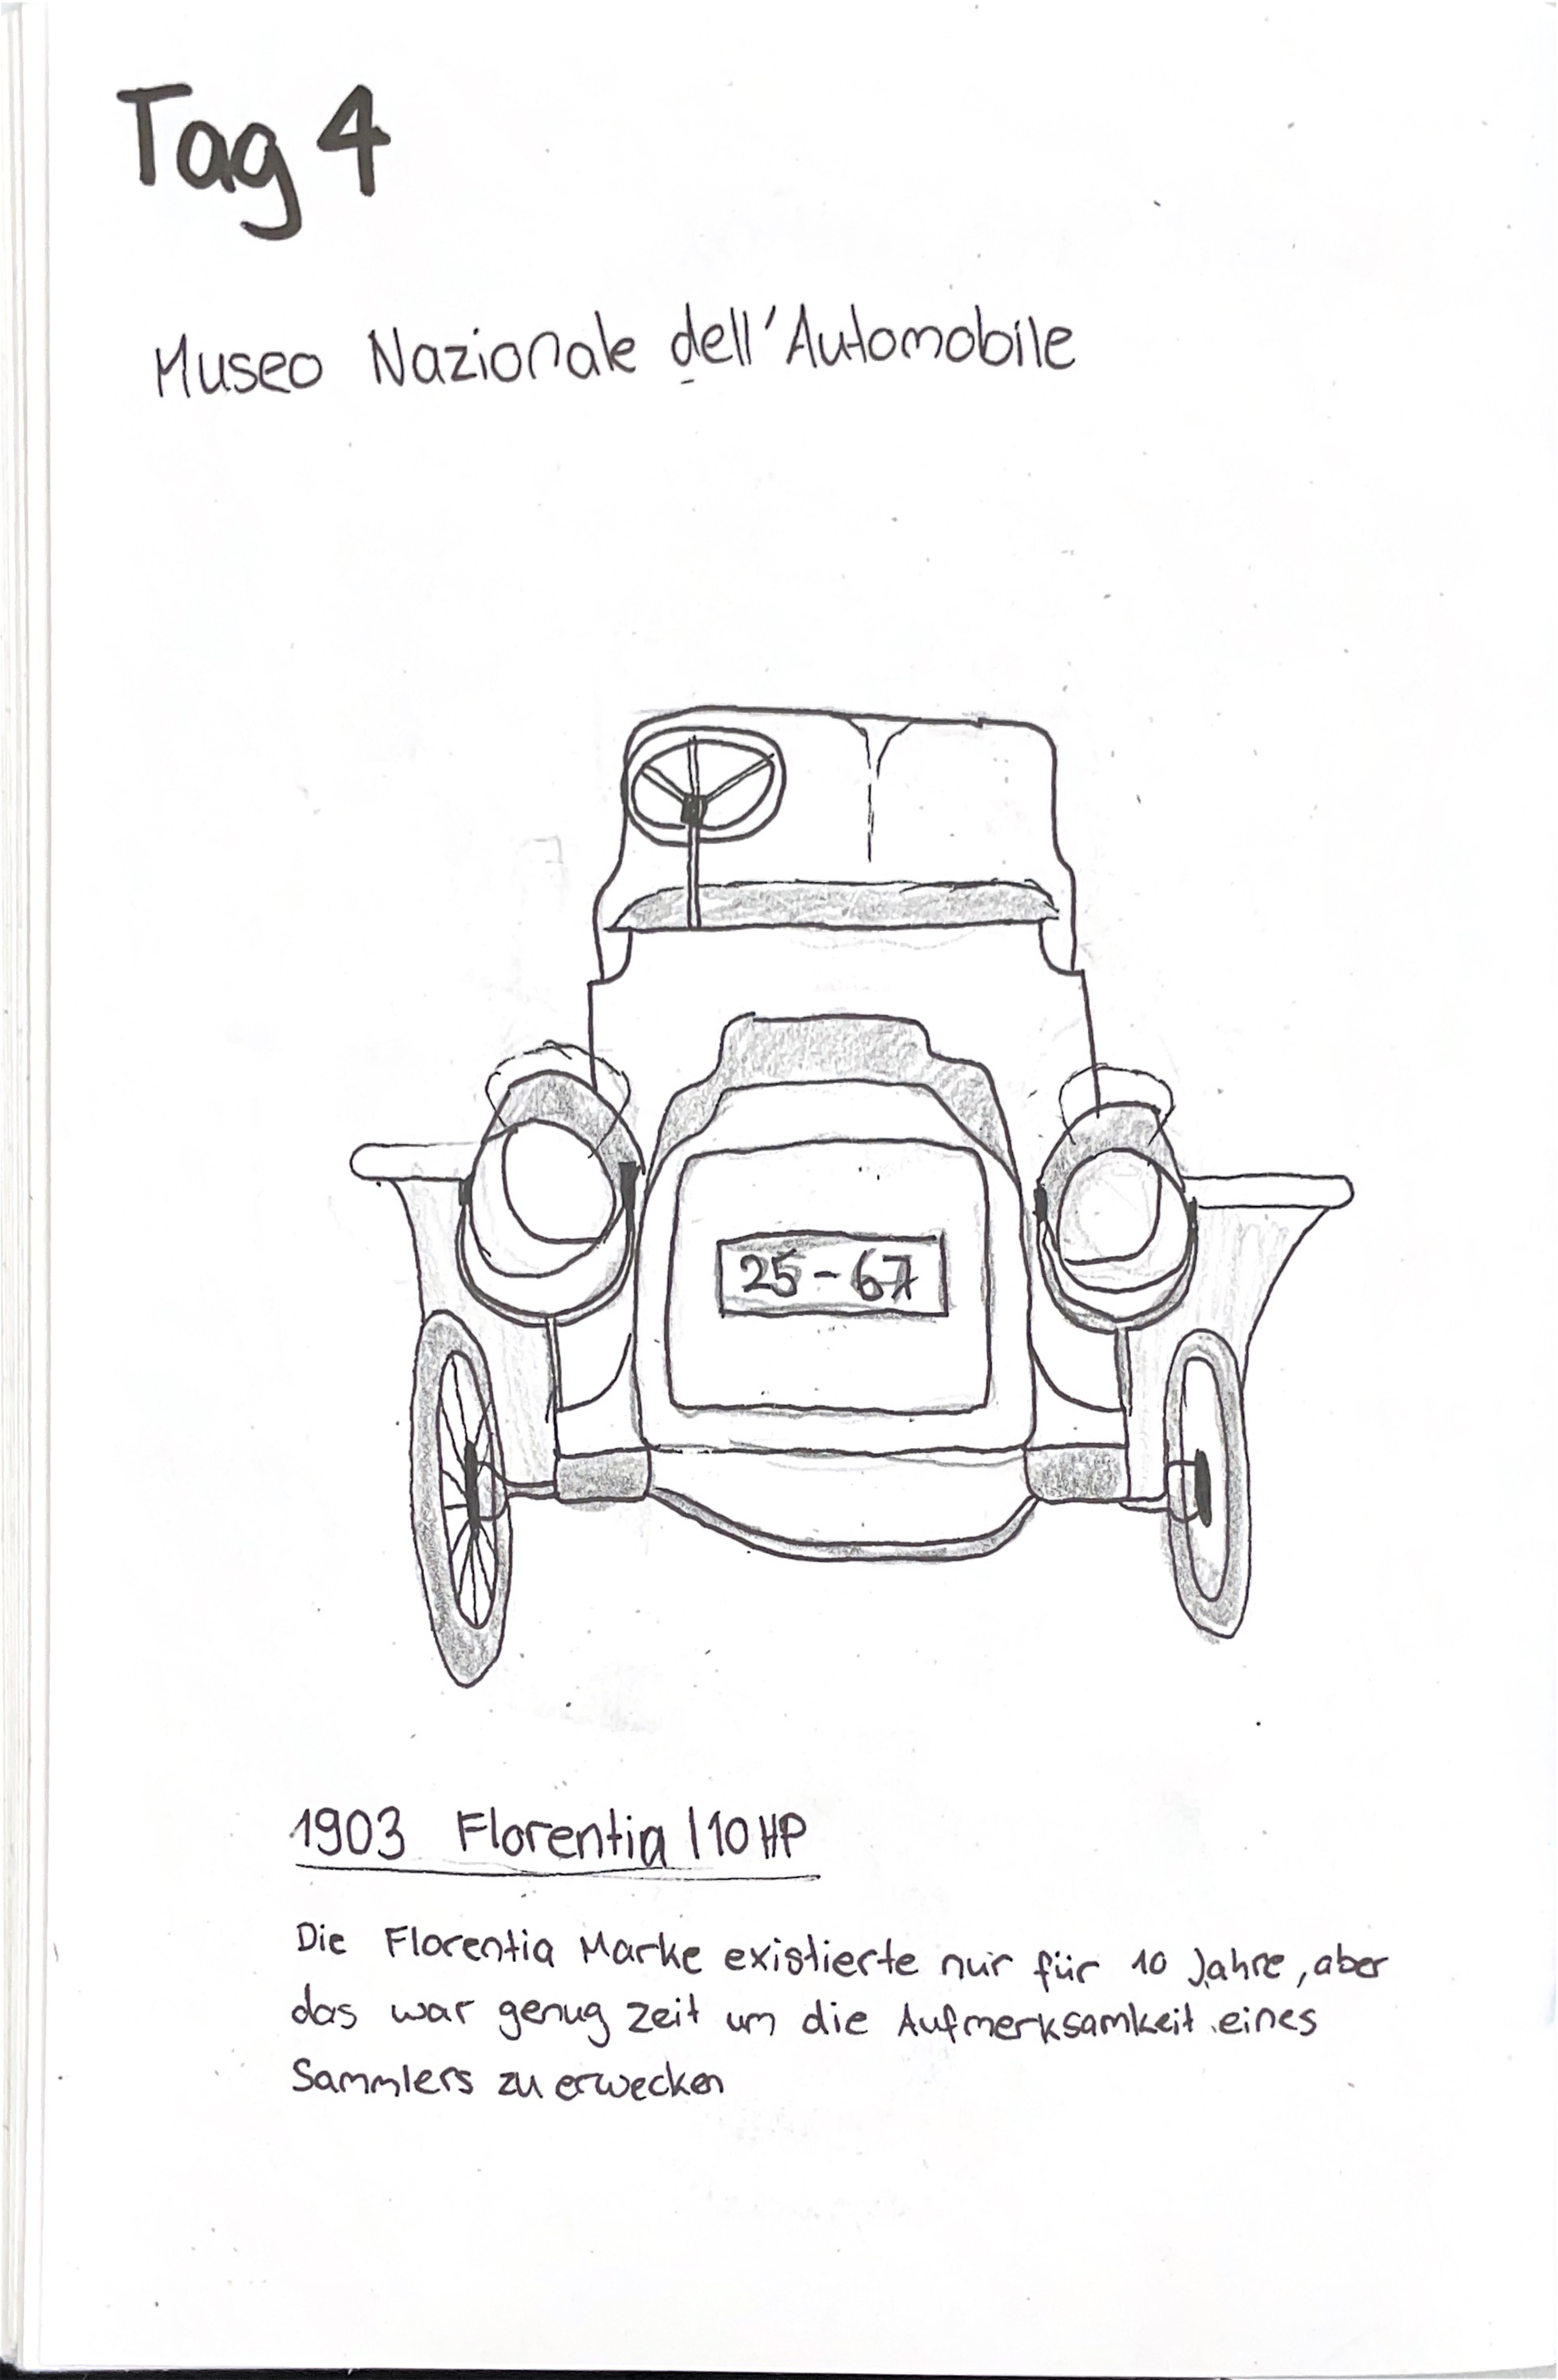 Tag 4
Museo Nazionale dell'Automobile
25-67
1903 Florentia | 10 HP
Die Florentia Marke existierte nur für 10 Jahre, aber
das war genug zeit um die Aufmerksamkeit eines
Sammlers zu erwecken